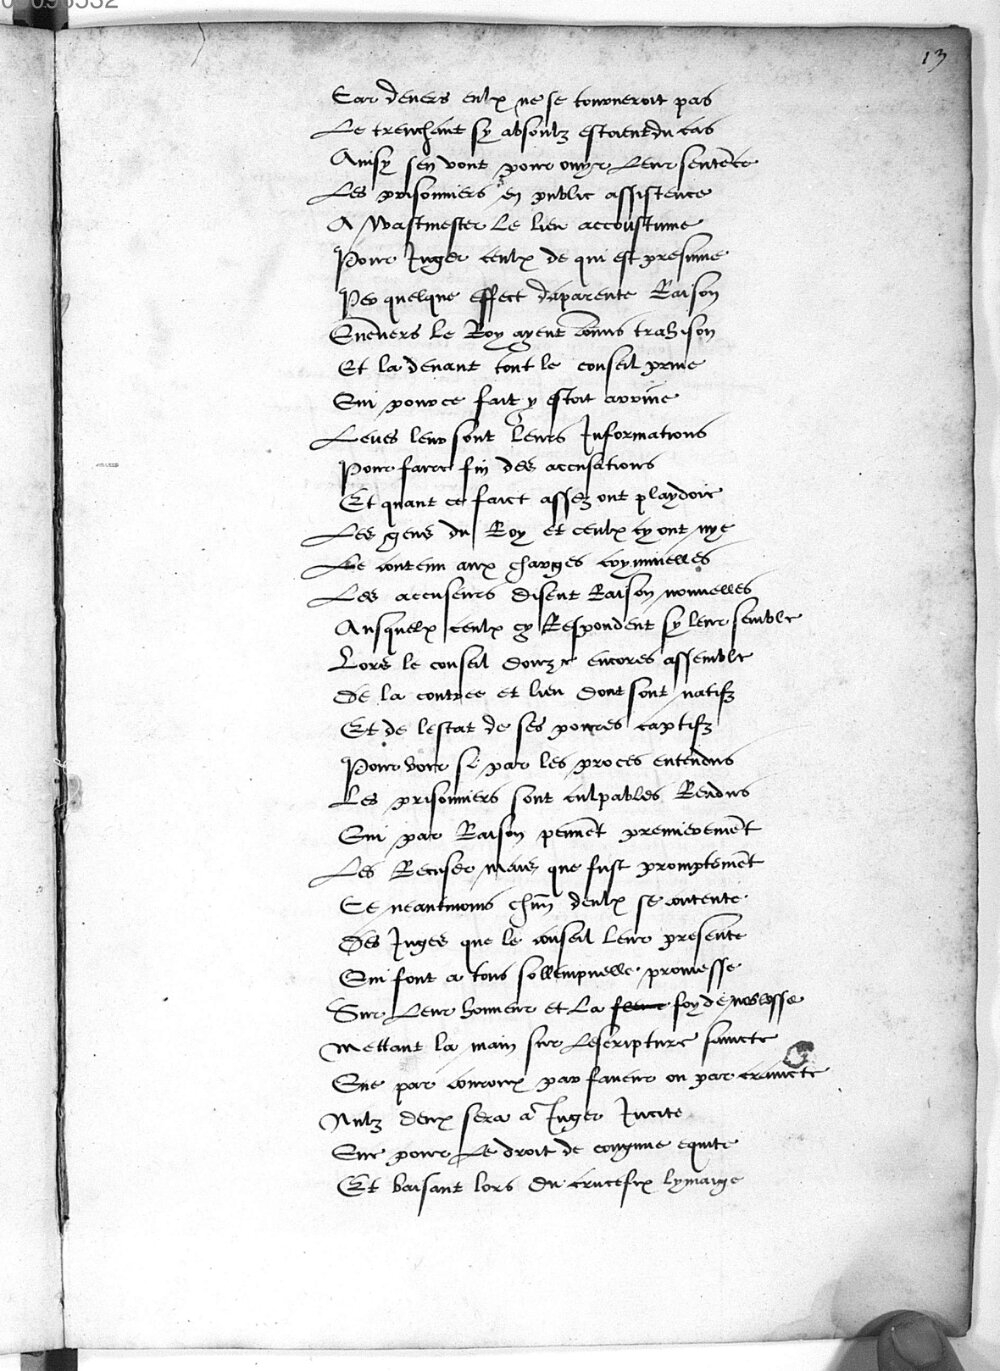 13
Car devers eulx ne se tourneroit pas
Le trenchant sy absoulz estoient du cas
Ainsy sen vont pour ouyr leur sentence
Les prisonniers en public assistence
A Wastmester le lieu accoustume
Pour Juger ceulx de qui est presume
Par quelque effect daparente Raison
Envers le Roy ayent commis trahison
Et la devant tout le conseil prive
Qui pour ce fait y estoit arrive
Leues leur sont leurs Informations
Pour faire fin des accusations
Et quant ce faict assez ont playdoie
Les gens du Roy et ceulx cy ont nye
Le contenu aux charges cryminelles
Les accuseurs disent Raison nouvelles
Ausquelx ceulx cy Respondent sy leur semble
Lors le conseil encores assemble
De la contree et lieu dont sont natifz
Et de lestat de ses poures captifz
Pour voir si par les proces entendus
Les prisonniers sont culpables Rendus
Qui par Raison peuvent premierement
Les Recuser mais que fust promptement
Et neantmoins chun deulx se contente
Des Juges que le conseil leur presente
Qui font a tous sollempnelle promesse
Sur leur honneur et la foy de noblesse
Mettant la main sur lescripture saincte
Que par couroux par faveur ou par craincte
Nulz deux sera a Juger Incite
Que pour le droit de commune equite
Et baisant lors du crucefix lymaige